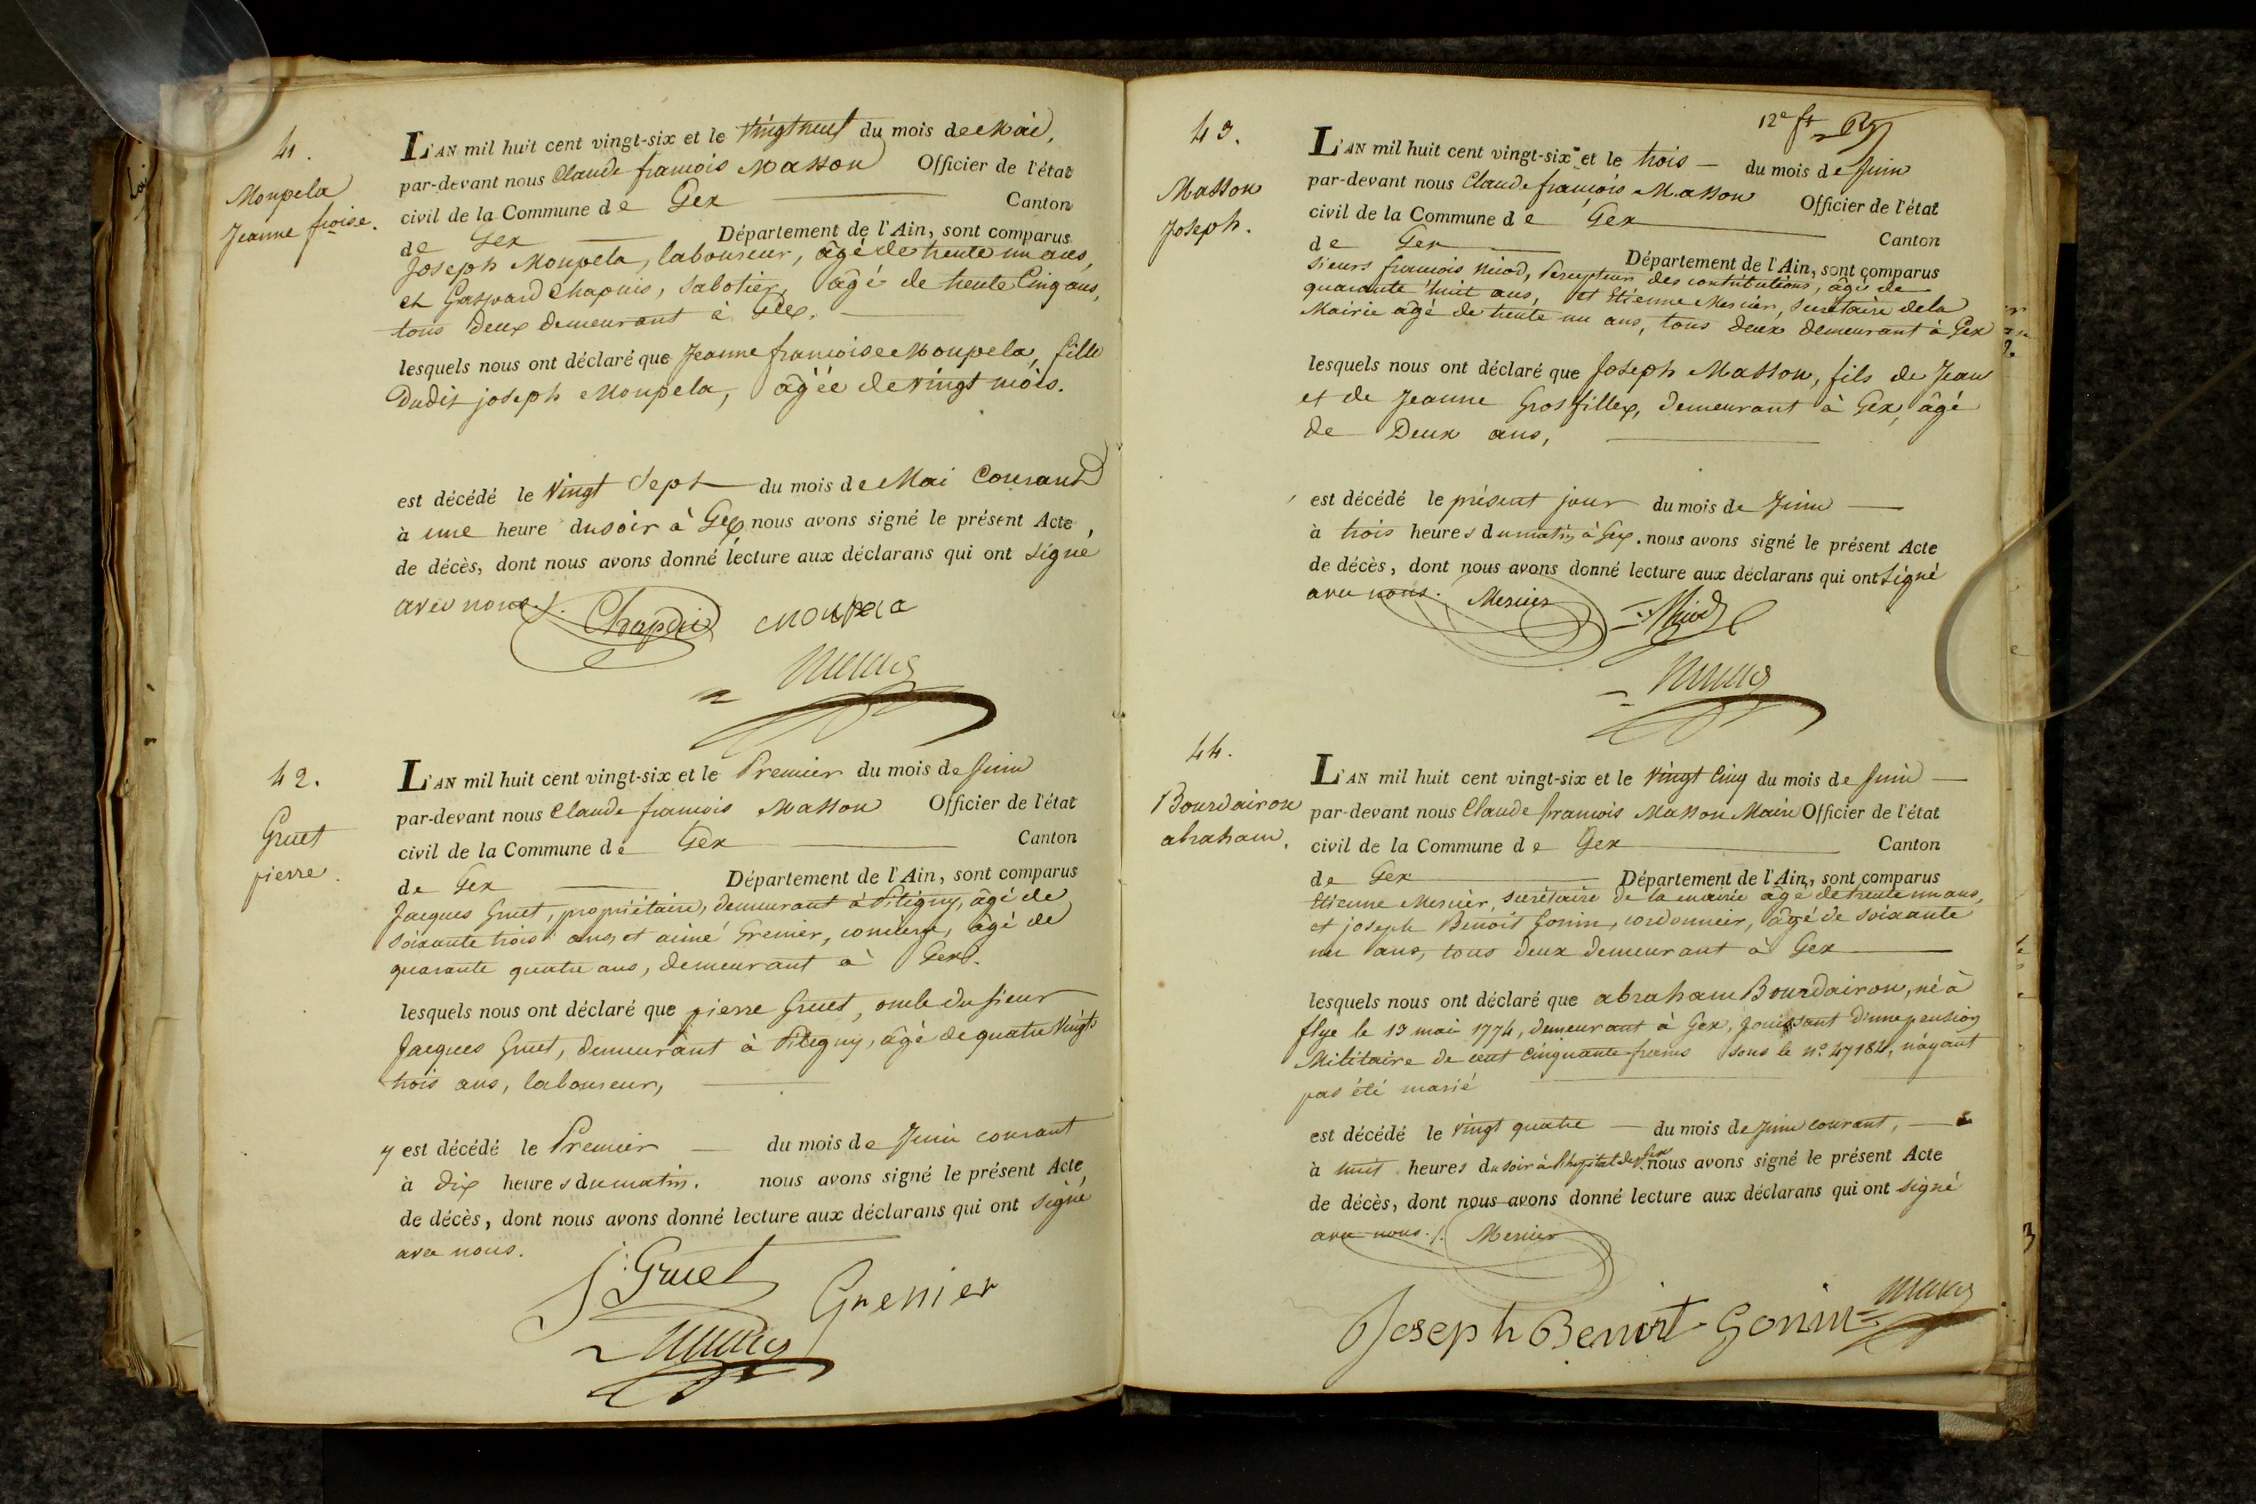 41.
Moupela
Jeanne fçoise.
L'AN mil huit cent vingt-six et le vingt neuf du mois de Mai,
par-devant nous Claude françois Masson Officier de l'état
civil de la Commune de Gex Canton
de Gex Département de l'Ain, sont comparus
Joseph Moupela, laboureur, âgé de trente un ans,
et Gaspard Chapuis, Sabotier, âgé de trente Cinq ans,
tous deux demeurant à Gex.
lesquels nous ont déclaré que Jeanne françoise Moupela, fille
Dudit joseph Moupela, âgée de vingt mois.
est décédé le vingt Sept du mois de Mai Courant
à une heure du soir à Gex nous avons signé le présent Acte,
de décès, dont nous avons donné lecture aux déclarans qui ont signé
avec nous./.
Chapuis Moupela
42.
Gruet
pierre.
L'AN mil huit cent vingt-six et le Premier du mois de Juin
par-devant nous Claude françois Masson Officier de l'état
civil de la Commune de Gex Canton
de Gex Département de l'Ain, sont comparus
Jacques Gruet, propriétaire, demeurant à Pitegny, âgé de
soixante trois ans, et aimé Grenier, concierge, âgé de
quarante quatre ans, demeurant à Gex.
lesquels nous ont déclaré que pierre Gruet, oncle du sieur
Jacques Gruet, demeurant à Pitegny, âgé de quatre Vingts
trois ans, laboureur,
y est décédé le Premier du mois de Juin courant
à dix heures du matin. nous avons signé le présent Acte
de décès, dont nous avons donné lecture aux déclarans qui ont signé
avec nous.
J: Gruet Grenier
12e ft
43.
Masson
Joseph.
L'AN mil huit cent vingt-six et le trois du mois de Juin
par-devant nous Claude françois Masson Officier de l'état
civil de la Commune de Gex Canton
de Gex Département de l'Ain, sont comparus
Sieurs françois Nicod, Percepteur des contributions, âgé de
quarante huit ans, et Etienne Mernier, Secrétaire de la
Mairie âgé de trente un ans, tous deux demeurant à Gex
lesquels nous ont déclaré que Joseph Masson, fils de Jean
et de Jeanne Grosfillex, demeurant à Gex, âgé
de Deux ans,
est décédé le présent jour du mois de Juin
à trois heures du matin à Gex. nous avons signé le présent Acte
de décès, dont nous avons donné lecture aux déclarans qui ont Signé
avec nous. Mernier Nicod
44.
Bourdairon
abraham.
L'AN mil huit cent vingt-six et le vingt Cinq du mois de Juin
par-devant nous Claude françois Masson Maire Officier de l'état
civil de la Commune de Gex Canton
de Gex Département de l'Ain, sont comparus
Etienne Mernier, secrétaire de la mairie âgé de trente un ans,
et joseph Benoit Gonin, cordonnier, âgé de soixante
un ans, tous deux demeurant à Gex
lesquels nous ont déclaré que abraham Bourdairon, né à
flye le 13 mai 1774, demeurant à Gex, Jouissant d'une pension
Militaire de cent cinquante francs sous le n.º 47184, n'ayant
pas été marié
est décédé le vingt quatre du mois de Juin courant,
à huit heures du soir à l'hopital de Gex nous avons signé le présent Acte
de décès, dont nous avons donné lecture aux déclarans qui ont signé
avec nous./. Mernier
Joseph Benoit Gonin